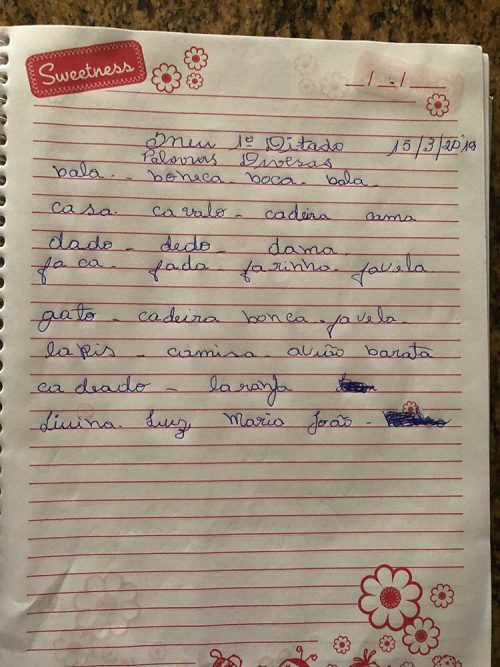 Sweetness
Meu 1º Ditado 15/3/2019
Palavras Diversas
bala - boneca - boca - bola -
casa - cavalo - cadeira cama
dado - dedo - dama -
faca - fada - farinha - favela
gato - cadeira bonca - favela -
lapis - camisa - avião barata
cadeado - laranja
Livina - Luz Maria João -